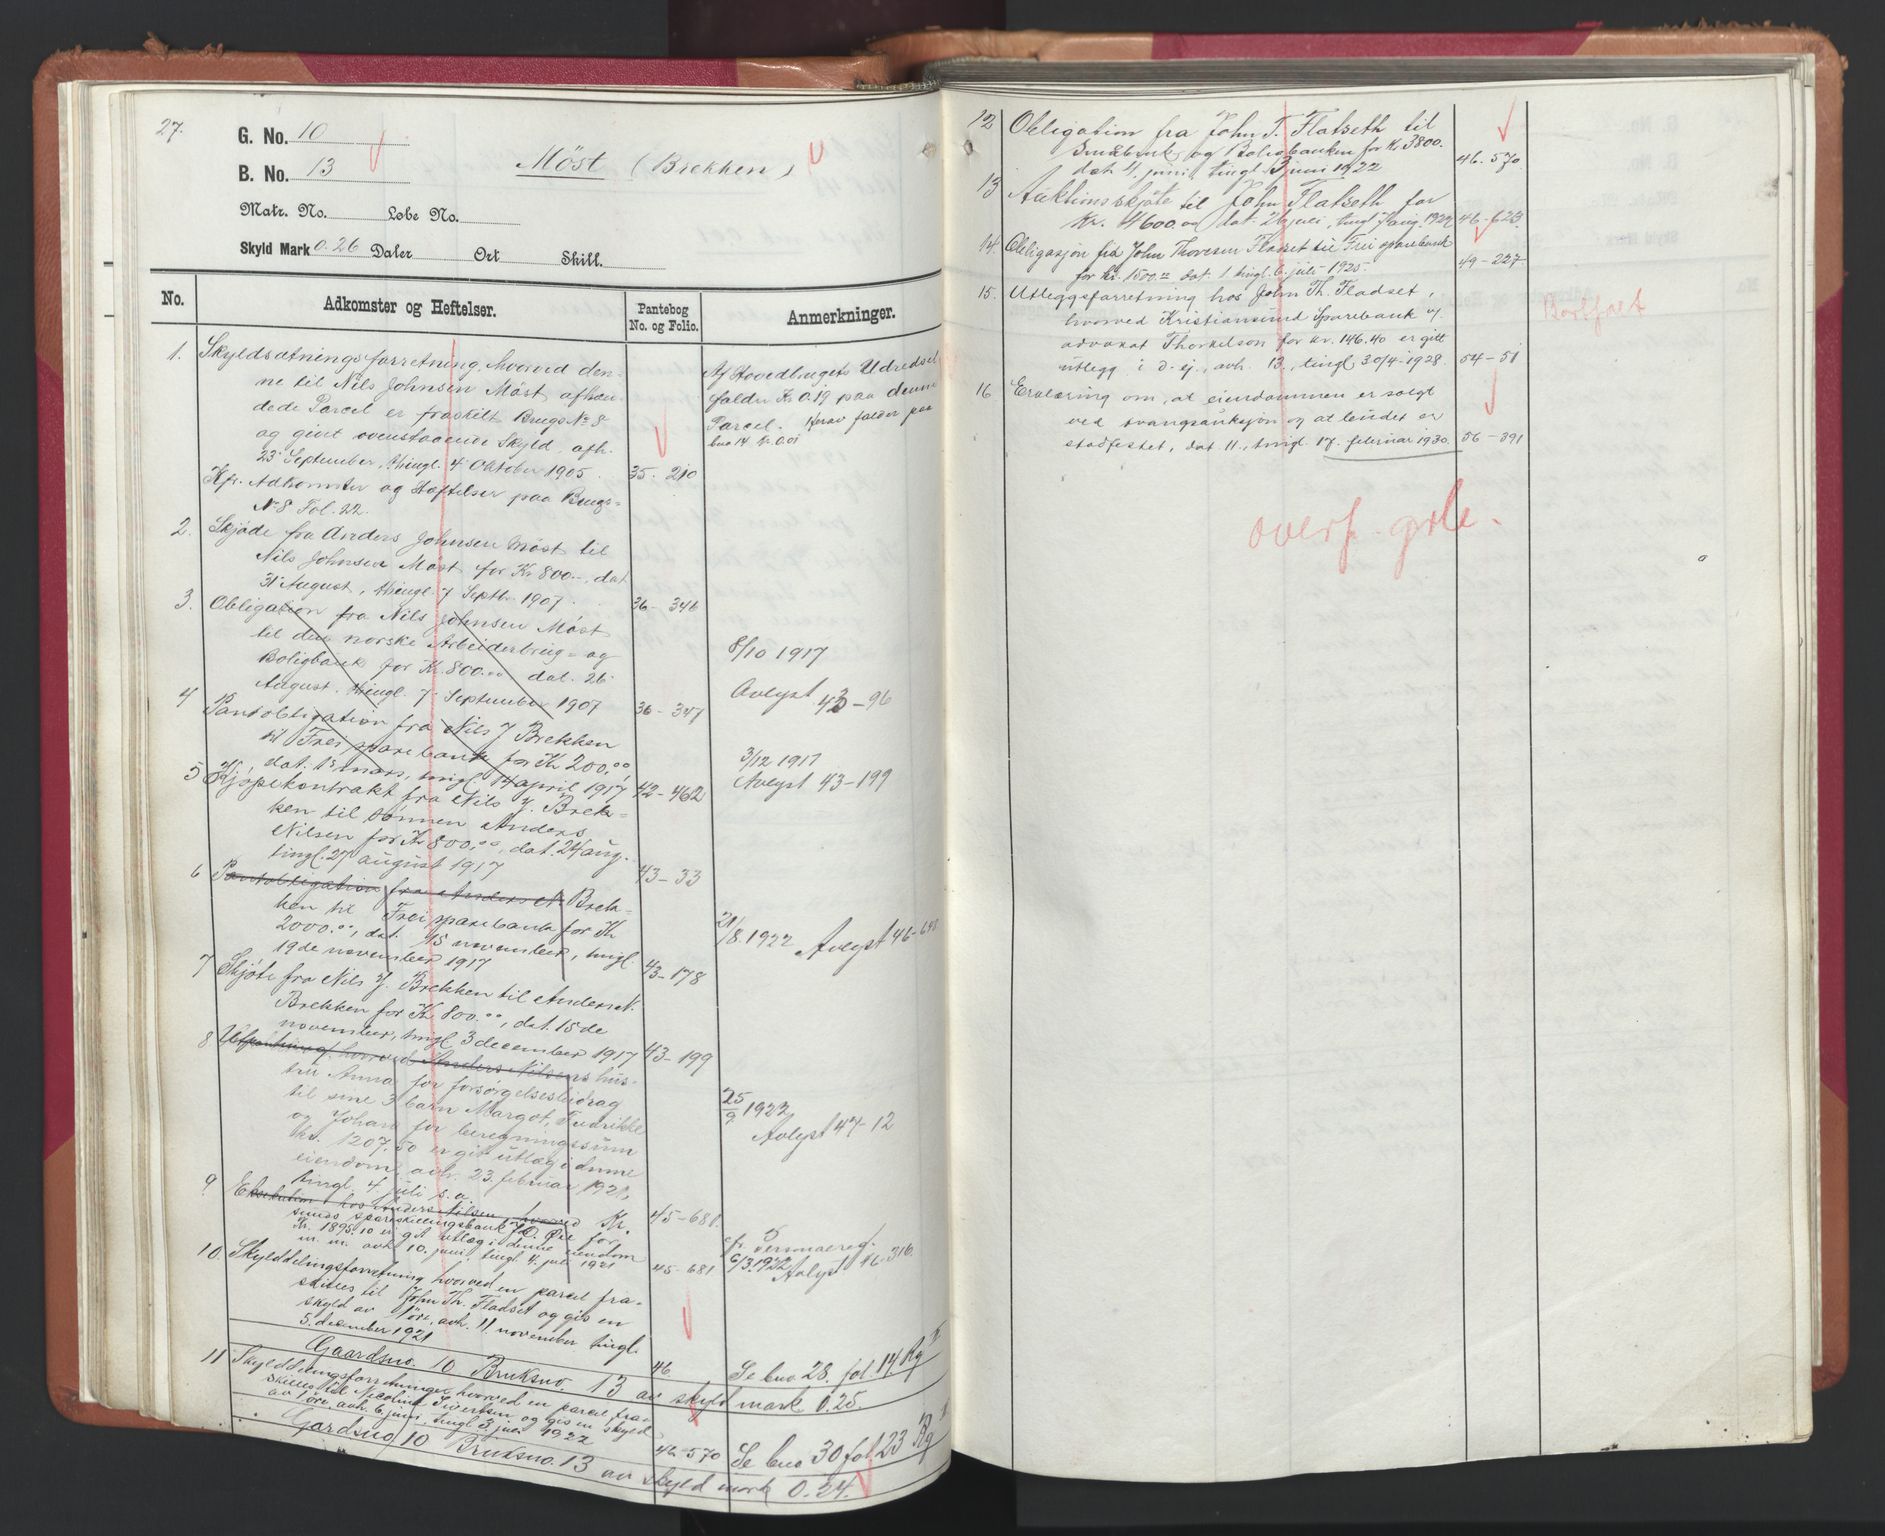 27.
G. No. 10
B. No. 13
Møst (Brekken)
Matr. No. Løbe No.
Skyld Mark 0.26 Daler Ort Skill.
No. Adkomster og Heftelser. Pantebog No. og Folio. Anmerkninger.
1. Skyldsætningsforretning, hvorved den-
ne til Nils Johnsen Møst afhæn-
dede Parcel er fraskilt Brugs No 8
og givet ovenstaaende Skyld, afh.
23 September, thingl. 4 Oktober 1905. 35. 210
Af Hovedbrugets Udredsel
falder Kr 0.19 paa denne
Parcel. Herav falder paa
bno 14 kr. 0.01
Kfr. Adkomster og Hæftelser paa Brugs-
No 8 Fol. 22.
2. Skjøde fra Anders Johnsen Møst til
Nils Johnsen Møst for Kr 800.-, dat
31 August, thingl. 7 Septbr. 1907. 36 - 346
3. Obligation fra Nils Johnsen Møst
til den norske Arbeiderbrug- og
Boligbank for Kr. 800.00 dat. 26
August, thingl. 7 September 1907 36 - 347
8/10 1917
Avlyst 43 - 96
4 Pantobligation fra Nils J Brekken
til Frei sparebank for Kr 200,00,
dat. 13 mars, tingl. 14 april 1917 42 - 462
3/12 1917
Avlyst 43 - 199
5 Kjøpekontrakt fra Nils J. Brek-
ken til sønnen Anders
Nilsen for Kr 800,00, dat. 24 aug.
tingl. 27 august 1917 43 - 33
6 Pantobligation fra Anders N. Brek-
ken til Frei sparebank for Kr
2000.00, dat. 15 november, tingl.
19de november 1917 43 - 178
21/8. 1922 Avlyst 46 - 648
7 Skjøte fra Nils J. Brekken til Anders N.
Brekken for Kr 800.00, dat. 15 de
november, tingl 3 december 1917 43 - 199
8 Utpantning hvorved Anders Nilsens hus-
tru Anna for forsørgelsesbidrag
til sine 3 barn Margot, Fredrikke
og Johan for beregningssum
kr. 1207,50 er git utlæg i denne
eiendom, avh. 23. februar 1921,
tingl. 4 juli s. a. 45 - 681.
25/9 1922
Avlyst 47 - 12
9 Eksekution hos Anders Nilsen, hvorved Kr.
sunds spareskillingsbank for
Kr. 1895.10 er git utlæg i denne eiendom
m. m. avh. 10. juni, tingl. 4. juli 1921 45 - 681
cfr. personalreg.
6/3. 1922 Avlyst 46 - 316
10. Skylddelingsforretning hvorved en parcel fra-
skilles til John Th. Fladset og gis en
skyld av 1 øre, avh. 11 november tingl.
5. december 1921 46
Gaardsno. 10 Bruksno. 13 av skyld mark 0.25.
Se bno 28. fol. 14 Rg II
11 Skylddelingsforretninger hvorved en parcel fra-
skilles til Nicoline Sivertsen og gis en skyld
av 1 øre, avh. 6 juni, tingl. 3 juli 1922 46 - 570
Se bno 30 fol. 23 Rg II
Gardsno 10 Bruksno. 13 av skyld mark 0.24.
12 Obligation fra John T. Flatseth til
Småbruk og Boligbanken for Kr 3800.
dat 4. juni, tingl 3 juni 1922 46 - 570
13 Auktionsskjøte til John Flatseth for
Kr. 4600.00 dat. 26 juli, tingl 7 aug. 1922 46 - 623.
14. Obligasjon fra John Thoresen Fladset til Frei sparebank
for kr. 1500.00 dat. 1 tingl. 6. juli - 1925. 49 - 227
15. Utleggsforretning hos John Th. Fladset,
hvorved Kristiansund Sparebank v/
advokat Thorkelson for kr. 146.40 er gitt
utlegg i d. ej., avh. 13., tingl 30/4 - 1928. 54 - 51
Bortfalt
16. Erklæring om, at eiendommen er solgt
ved tvangsauksjon og at budet er
stadfestet, dat. 11., tingl. 17. februar 1930. 56 - 391
overf. grb.